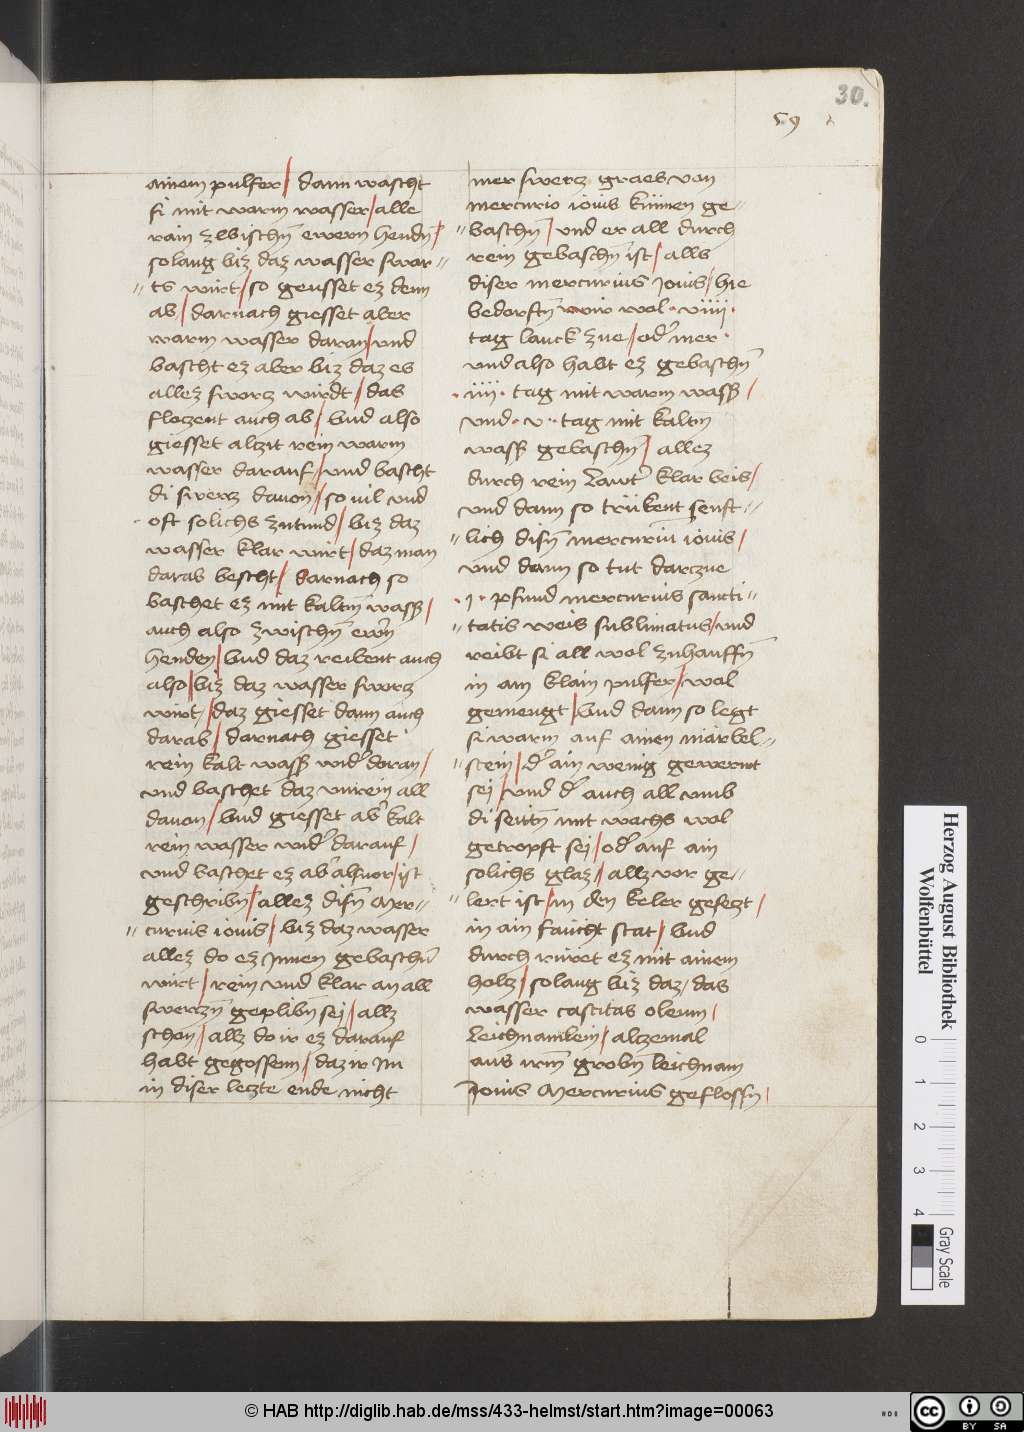 30.
59
ainem pulfer / dann wascht
si mit warm wasser / alle
rain zwischn̄ ewern hendn̄ /
solang biz daz wasser swar-
tz wirt / so geusset ez denn
ab / darnach giesset aber
warm wasser daran / und
bascht ez aber biz daz es
allez swarz wirdt / das
flozent auch ab / Vnd also
giesset altzit rein warm
wasser darauf / und bascht
di swerz dauon / so uil vnd
oft solichs zutund / biz daz
wasser klar wirt / daz man
darab bescht / darnach so
baschet ez mit kaltm̄ wass̄ /
auch also zwischn̄ ewrn̄
henden / Vnd daz reibent auch
also / biz daz wasser swerz
wirt / daz giesset dann auch
darab / darnach giesset
rein kalt wass̄ wid̄ doran /
vnd baschet daz unrein all
dauon / Vnd giesset ab̄ kalt
rein wasser wid̄ darauf /
vnd baschet ez ab̄ alsuor / ist
geschribn̄ / allez disn̄ Mer-
curius iouis / biz daz wasser
allez do ez Innen gebaschn̄
wirt / rein vnd klar an all
swerzn̄ geplibn̄ sei / allz
schon / allz do ir ez darauf
habt gegossenn / daz ir Im
in diser letzte ende nicht
mer swerz graes von
mercurio iouis künnen ge-
baschn̄ / vnd er all durch
rein gebaschn̄ ist / alls
diser mercurius Jouis / hie
bedorftn̄ wir wol · viiij ·
tag lanck zue / od̄ mer ·
vnd also habt ez gebaschn̄
· iiij · tag mit warm wass̄ /
vnd · v · tag mit kaltn̄
wass̄ gebaschn̄ / allez
durch rein Lawt̄ klar beis /
vnd dann so trükent senft-
lich disn̄ mercuriū iouis /
vnd dann so tut darzue
· j · pfund mercurius sancti-
tatis weis sublimatus / vnd
reibt si all wol zuhauffn̄
in am klain pulfer / wol
gemengt / Vnd dann so legt
si warm auf ainen märbel-
stein / d̄ ain wenig gewermt
sei / vnd d̄ auch all vmb
di seittn̄ mit wachs wol
getropft sei / od̄ auf ain
solichs glaz / allz vor ge-
lert ist / in den keler gesezt /
in ain faücht stat / Vnd
durch rüret ez mit ainem
holtz / solang biz daz / das
wasser castitas oleum /
Leichnamlein / altzemal
aus irm̄ grobn̄ leichnam
Jouis Mercurius geflossn̄ /
Herzog August Bibliothek
Wolfenbüttel
0 1 2 3 4
Gray Scale
© HAB http://diglib.hab.de/mss/433-helmst/start.htm?image=00063
cc BY SA